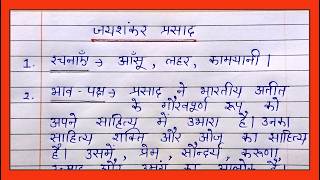 जयशंकर प्रसाद
1. रचनाएँ → आँसू , लहर , कामयानी ।
2. भाव - पक्ष → प्रसाद ने भारतीय अतीत
के गौरवपूर्ण रूप को
अपने साहित्य में उभारा है। उनका
साहित्य शक्ति और ओज का साहित्य
है। उसमें , प्रेम , सौन्दर्य , करूणा